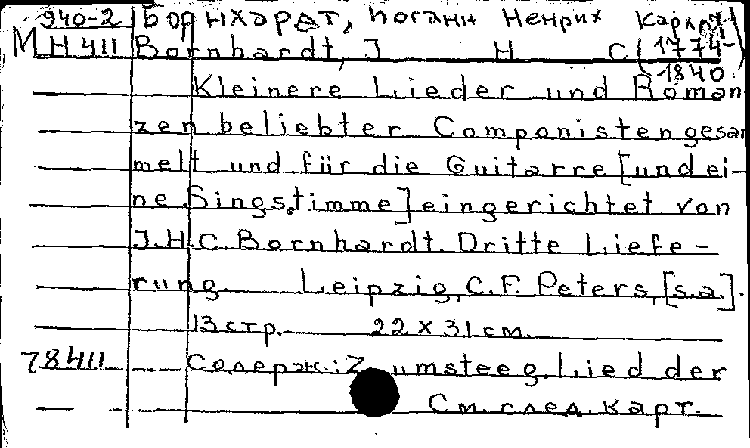 940-2 Борнхардт, Иоганн Генрих Карл (1774-
МН411 Bornhardt, J H C 1840)
Kleinere Lieder und Roman-
zen beliebter Componisten gesam
melt und für die Guitarre [und ei-
ne Singstimme] eingerichtet von
J.H.C. Bornhardt. Dritte Liefe-
rung. Leipzig, C.F. Peters, [s.a.].
13 стр. 22 x 31 см.
78411 Содерж.: Zumsteeg. Lied der
См. след. карт.